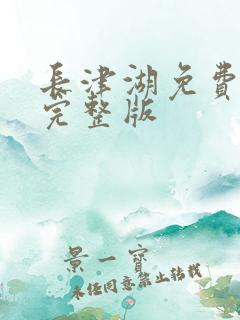 長津湖免費
完整版
景一寶
未經同意禁止轉載